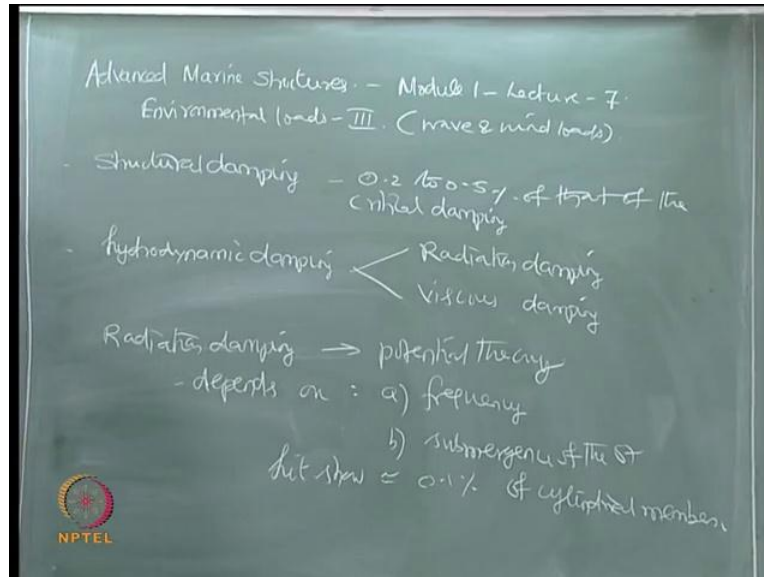 Advanced Marine Structures. - Module 1 - Lecture - 7.
Environmental loads - III. (wave & wind loads)
- Structural damping - 0.2 to 0.5%. of that of the
critical damping
- hydrodynamic damping < Radiation damping
Viscous damping
Radiation damping → potential theory
- depends on : a) frequency
b) submergence of the st
lit show = 0.1% of cylindrical members.
NPTEL